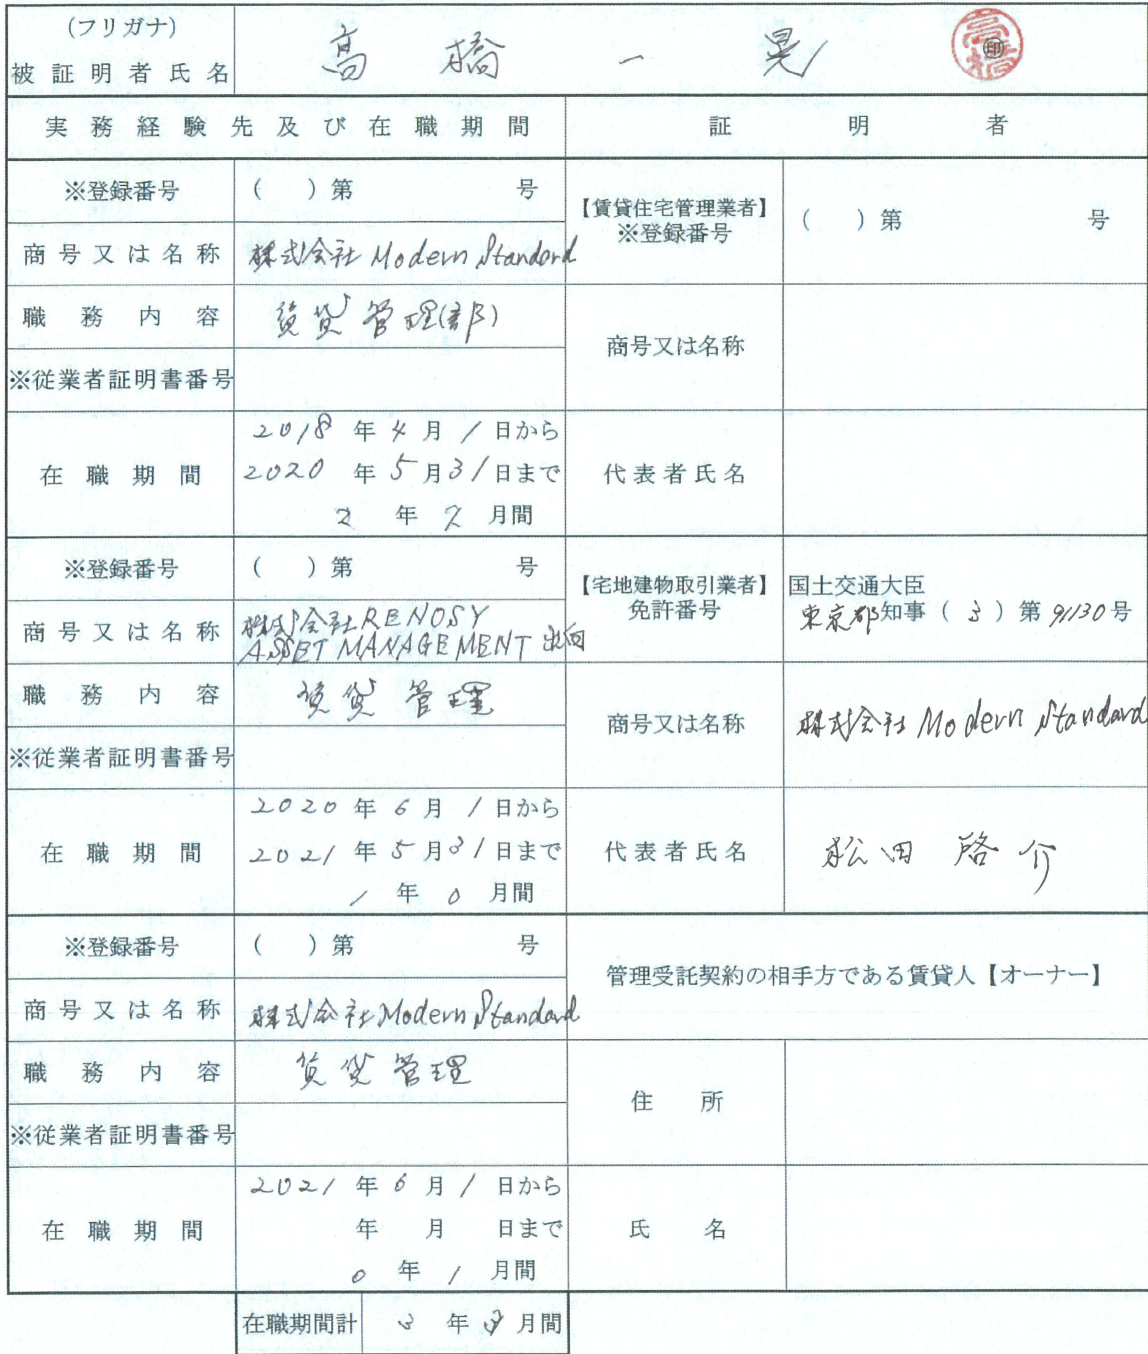 (フリガナ)
被証明者氏名 高橋 一晃 高橋 ㊞
実務経験先及び在職期間 証明者
※登録番号 ( )第 号
商号又は名称 株式会社 Modern Standard
職務内容 賃貸管理(部)
※従業者証明書番号
在職期間 2018年4月1日から
2020年5月31日まで
2年2月間
【賃貸住宅管理業者】
※登録番号 ( )第 号
商号又は名称
代表者氏名
※登録番号 ( )第 号
商号又は名称 株式会社RENOSY
ASSET MANAGEMENT 出向
職務内容 賃貸管理
※従業者証明書番号
在職期間 2020年6月1日から
2021年5月31日まで
1年0月間
【宅地建物取引業者】
免許番号 国土交通大臣
東京都知事(3)第91130号
商号又は名称 株式会社 Modern Standard
代表者氏名 松田 啓介
※登録番号 ( )第 号
商号又は名称 株式会社 Modern Standard
職務内容 賃貸管理
※従業者証明書番号
在職期間 2021年6月1日から
年 月 日まで
0年1月間
管理受託契約の相手方である賃貸人【オーナー】
住所
氏名
在職期間計 3年 月間